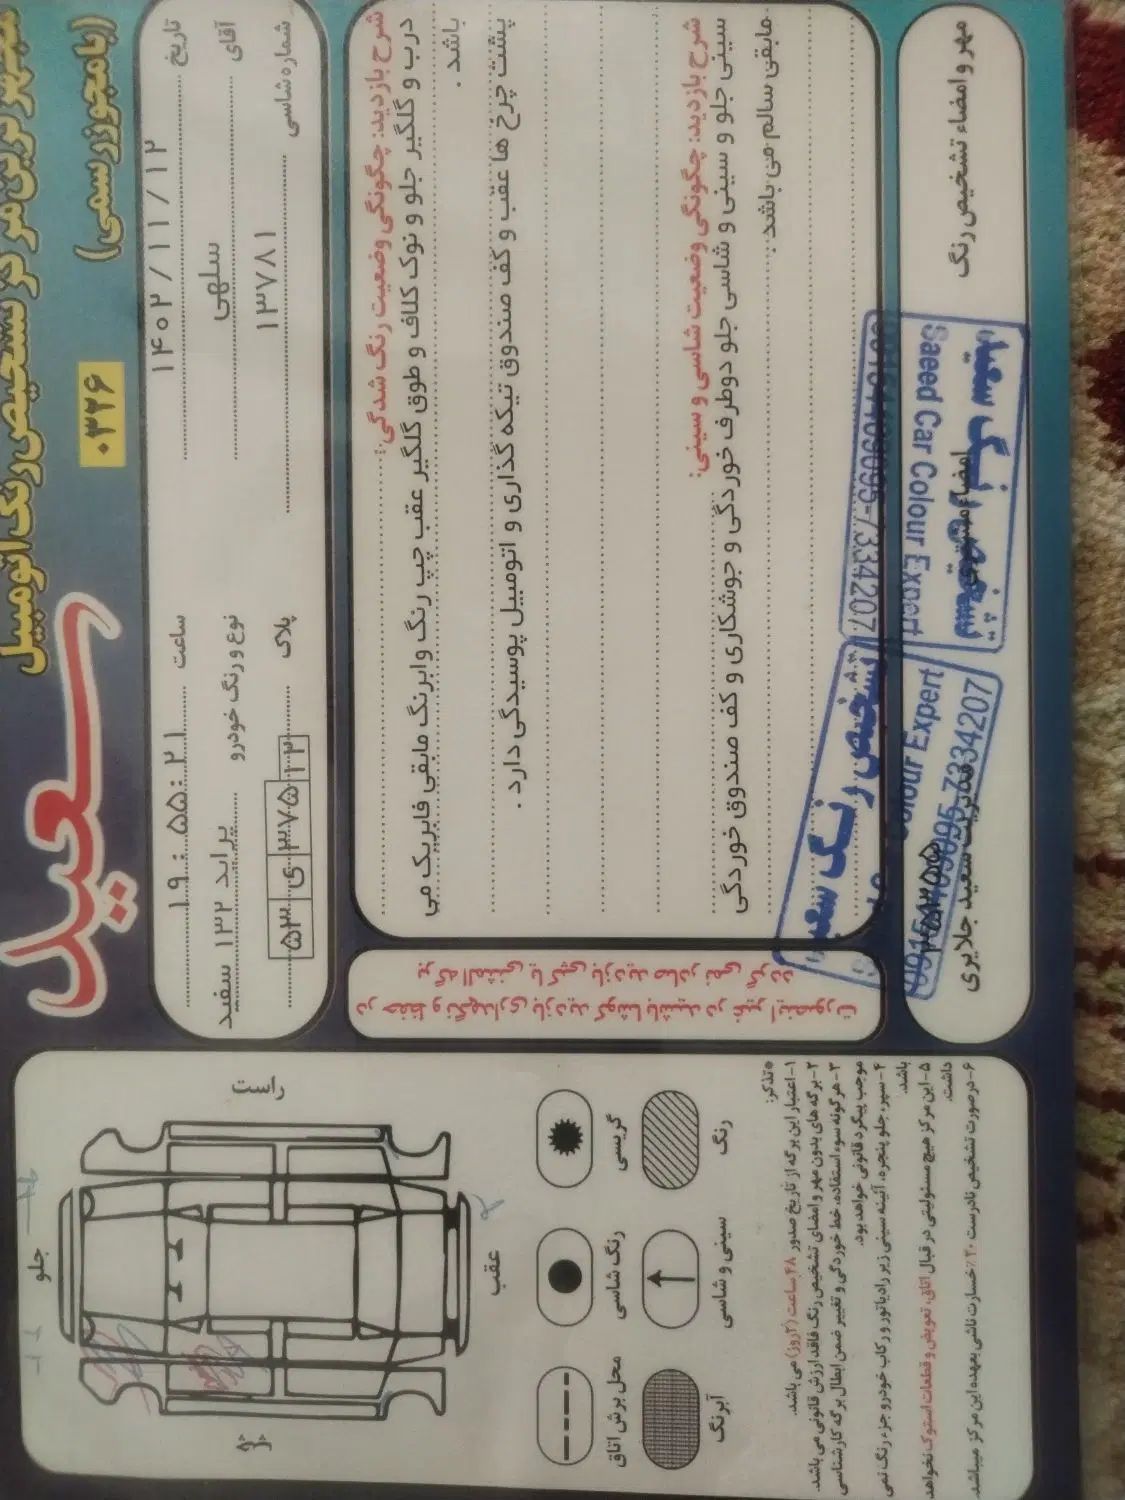 مجهزترین مرکز تشخیص رنگ اتومبیل
(با مجوز رسمی)
سعید
۰۳۲۶
تاریخ ۱۴۰۲/۱۱/۱۲
ساعت ۱۹:۵۵:۲۱
آقای
نوع و رنگ خودرو پراید ۱۳۲ سفید
شماره شاسی ۱۳۷۸۱
پلاک ۵۳ ی ۳۷۵ ۱۲
شرح بازدید: چگونگی وضعیت رنگ شدگی:
درب و گلگیر جلو و نوک کلاف و طوق گلگیر عقب چپ رنگ وابرنگ مابقی فابریک می
باشد .
پشت چرخ ها عقب و کف صندوق تیکه گذاری و اتومبیل پوسیدگی دارد .
شرح بازدید: چگونگی وضعیت شاسی و سینی:
سینی جلو و سینی و شاسی جلو دوطرف خوردگی و جوشکاری و کف صندوق خوردگی
مابقی سالم می باشد .
در حفظ و نگهداری بازدید کوشا باشید در غیر اینصورت
برگه المثنی یا کپی بازدید صادر نمی گردد
مهر و امضاء تشخیص رنگ
امضاء مشتری
مدیریت سعید جلایری
تشخیص رنگ سعید
Saeed Car Colour Expert
09151409095-7334207
تشخیص رنگ سعید
Colour Expert
09151409095-7334207
جلو
راست
چپ
عقب
گریسی
رنگ شاسی
محل برش اتاق
رنگ
سینی و شاسی
آبرنگ
*تذکر:
۱-اعتبار این برگه از تاریخ صدور ۴۸ ساعت (۲روز) می باشد.
۲-برگه های بدون مهر و امضای تشخیص رنگ فاقد ارزش قانونی می باشد.
۳-هرگونه سوء استفاده، خط خوردگی و تغییر ضمن ابطال برگه کارشناسی
موجب پیگرد قانونی خواهد بود.
۴-سپر، جلو پنجره، آئینه سینی زیر رادیاتور و رکاب خودرو جزء رنگ نمی
باشد.
۵-این مرکز هیچ مسئولیتی در قبال اتاق، تعویض و قطعات استوک نخواهد
داشت.
۶-در صورت تشخیص نادرست ۲۰٪ خسارت ناشی بعهده این مرکز میباشد.